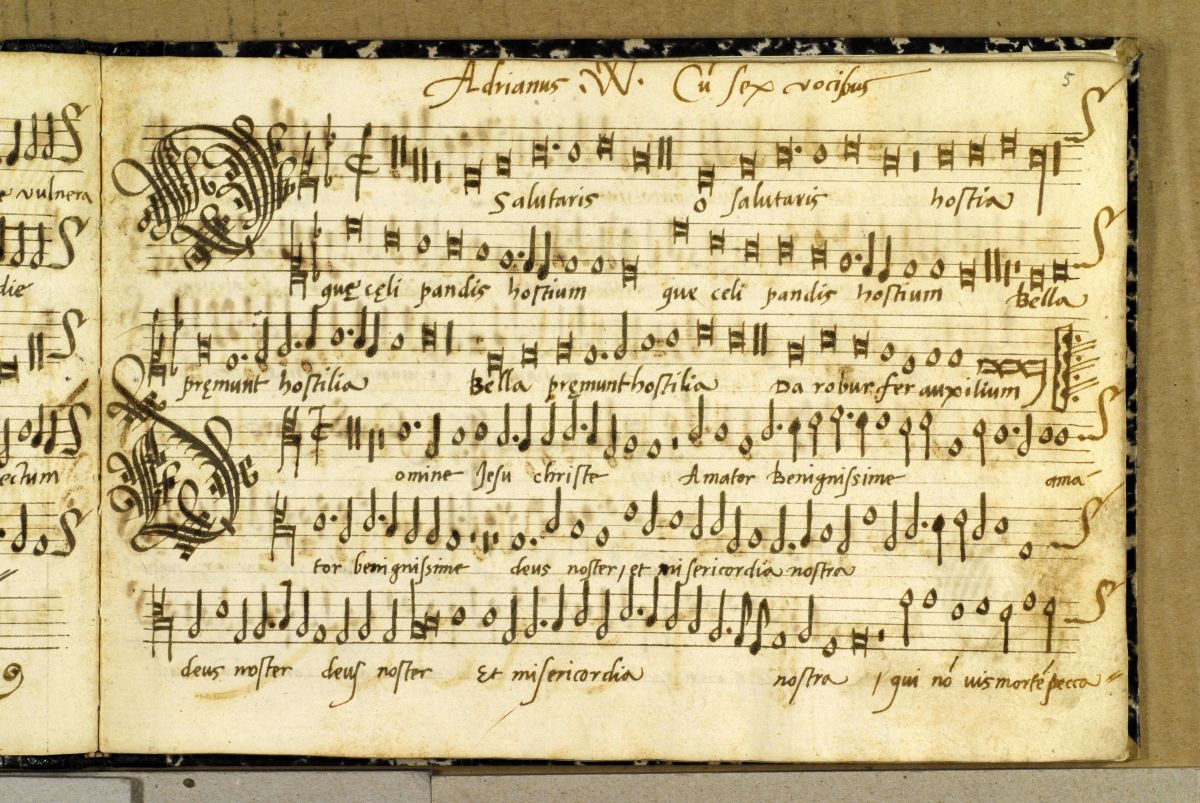 Adrianus .W. Cū sex vocibus
5
e vulnera
O Salutaris o salutaris hostia
die
quę cęli pandis hostium que celi pandis hostium Bella
pręmunt hostilia Bella pręmunt hostilia Da robur fer auxilium
ectum
Domine Jesu christe Amator Benignissime amá
tor benignissime deus noster, et misericordia nostra
deus noster deus noster Et misericordia nostra / qui nó vis morté pecca
9